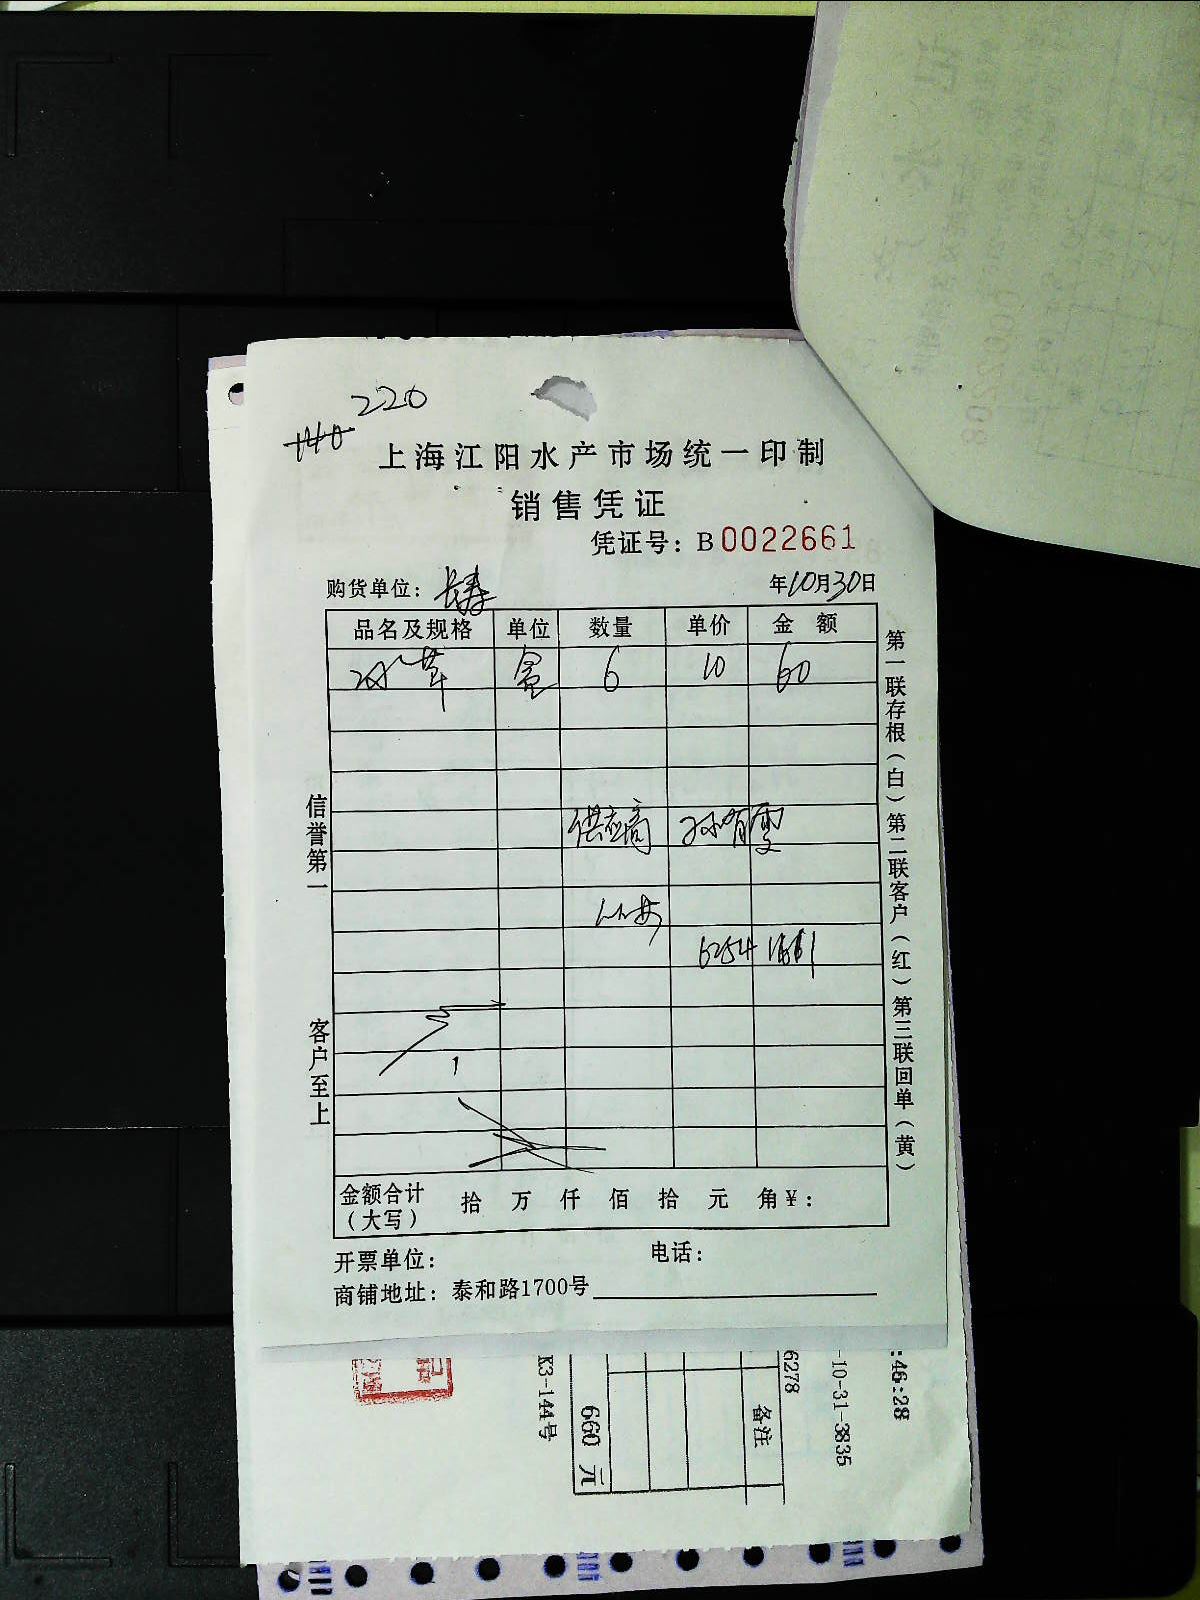 220
上海江阳水产市场统一印制
销售凭证
凭证号：B0022661
购货单位：长寿 年10月30日
品名及规格 单位 数量 单价 金额
盒 6 10 60
供应商 孙有雯
6254
信誉第一
客户至上
第一联存根（白）第二联客户（红）第三联回单（黄）
金额合计（大写） 拾 万 仟 佰 拾 元 角 ¥：
开票单位： 电话：
商铺地址：泰和路1700号
:46:28
-10-31-3835
6278
备注
660 元
K3-144号